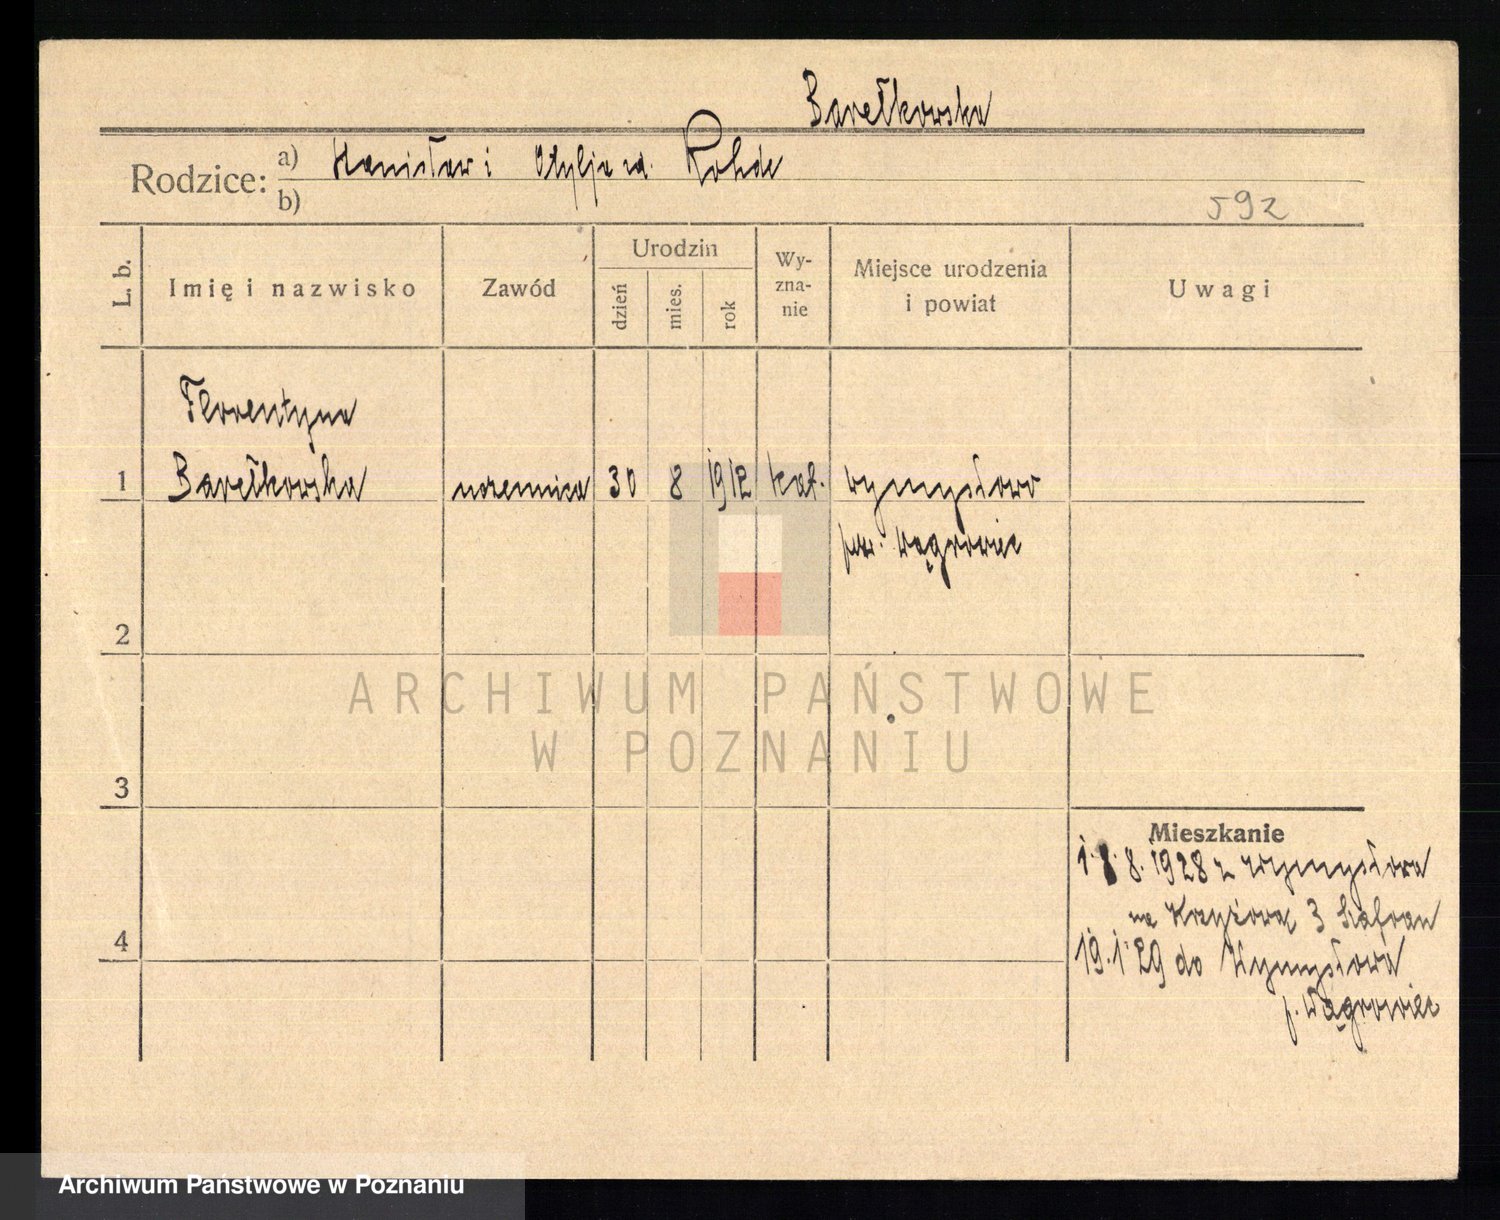 Barełkowska
Rodzice: a) Stanisław i Otylja z d. Rohde
b)
592
L. b. Imię i nazwisko Zawód Urodzin dzień mies. rok Wyznanie Miejsce urodzenia i powiat Uwagi
Florentyna
1 Barełkowska uczennica 30 8 1912 kat. Wymysłowo
pow. Wągrowiec
2
3
4
Mieszkanie
8. 1928 z Wymysłowa
na Krzyżową 3 Szafran
19.1.29 do Wymysłowa
p. Wągrowiec
ARCHIWUM PAŃSTWOWE
W POZNANIU
Archiwum Państwowe w Poznaniu